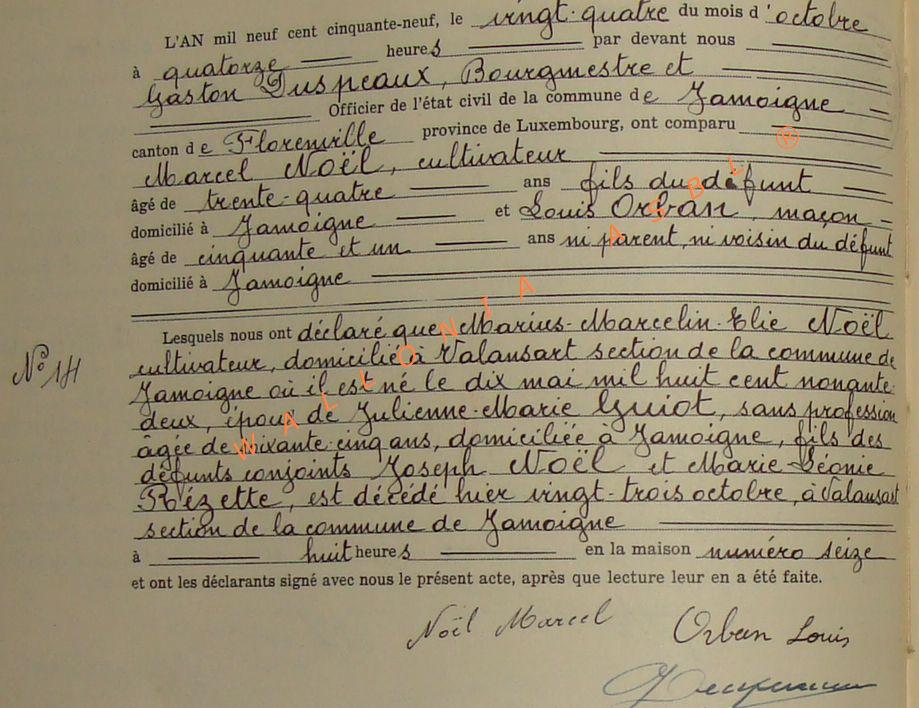 L'AN mil neuf cent cinquante-neuf, le vingt-quatre du mois d'octobre
à quatorze heures par devant nous
Gaston Duspeaux, Bourgmestre et
Officier de l'état civil de la commune de Jamoigne
canton de Florenville province de Luxembourg, ont comparu
Marcel Noël, cultivateur
âgé de trente-quatre ans fils du défunt
domicilié à Jamoigne et Louis Orban, maçon
âgé de cinquante et un ans ni parent, ni voisin du défunt
domicilié à Jamoigne
Lesquels nous ont déclaré que Marius-Marcelin-Elie Noël
N° 14 cultivateur, domicilié à Valansart section de la commune de
Jamoigne où il est né le dix mai mil huit cent nonante-
deux, époux de Julienne-Marie Guiot, sans profession
âgée de soixante-cinq ans, domiciliée à Jamoigne, fils des
défunts conjoints Joseph Noël et Marie-Léonie
Rézette, est décédé hier vingt-trois octobre, à Valansart
section de la commune de Jamoigne
à huit heures en la maison numéro seize
et ont les déclarants signé avec nous le présent acte, après que lecture leur en a été faite.
Noël Marcel Orban Louis
WALLONIA ASBL ®